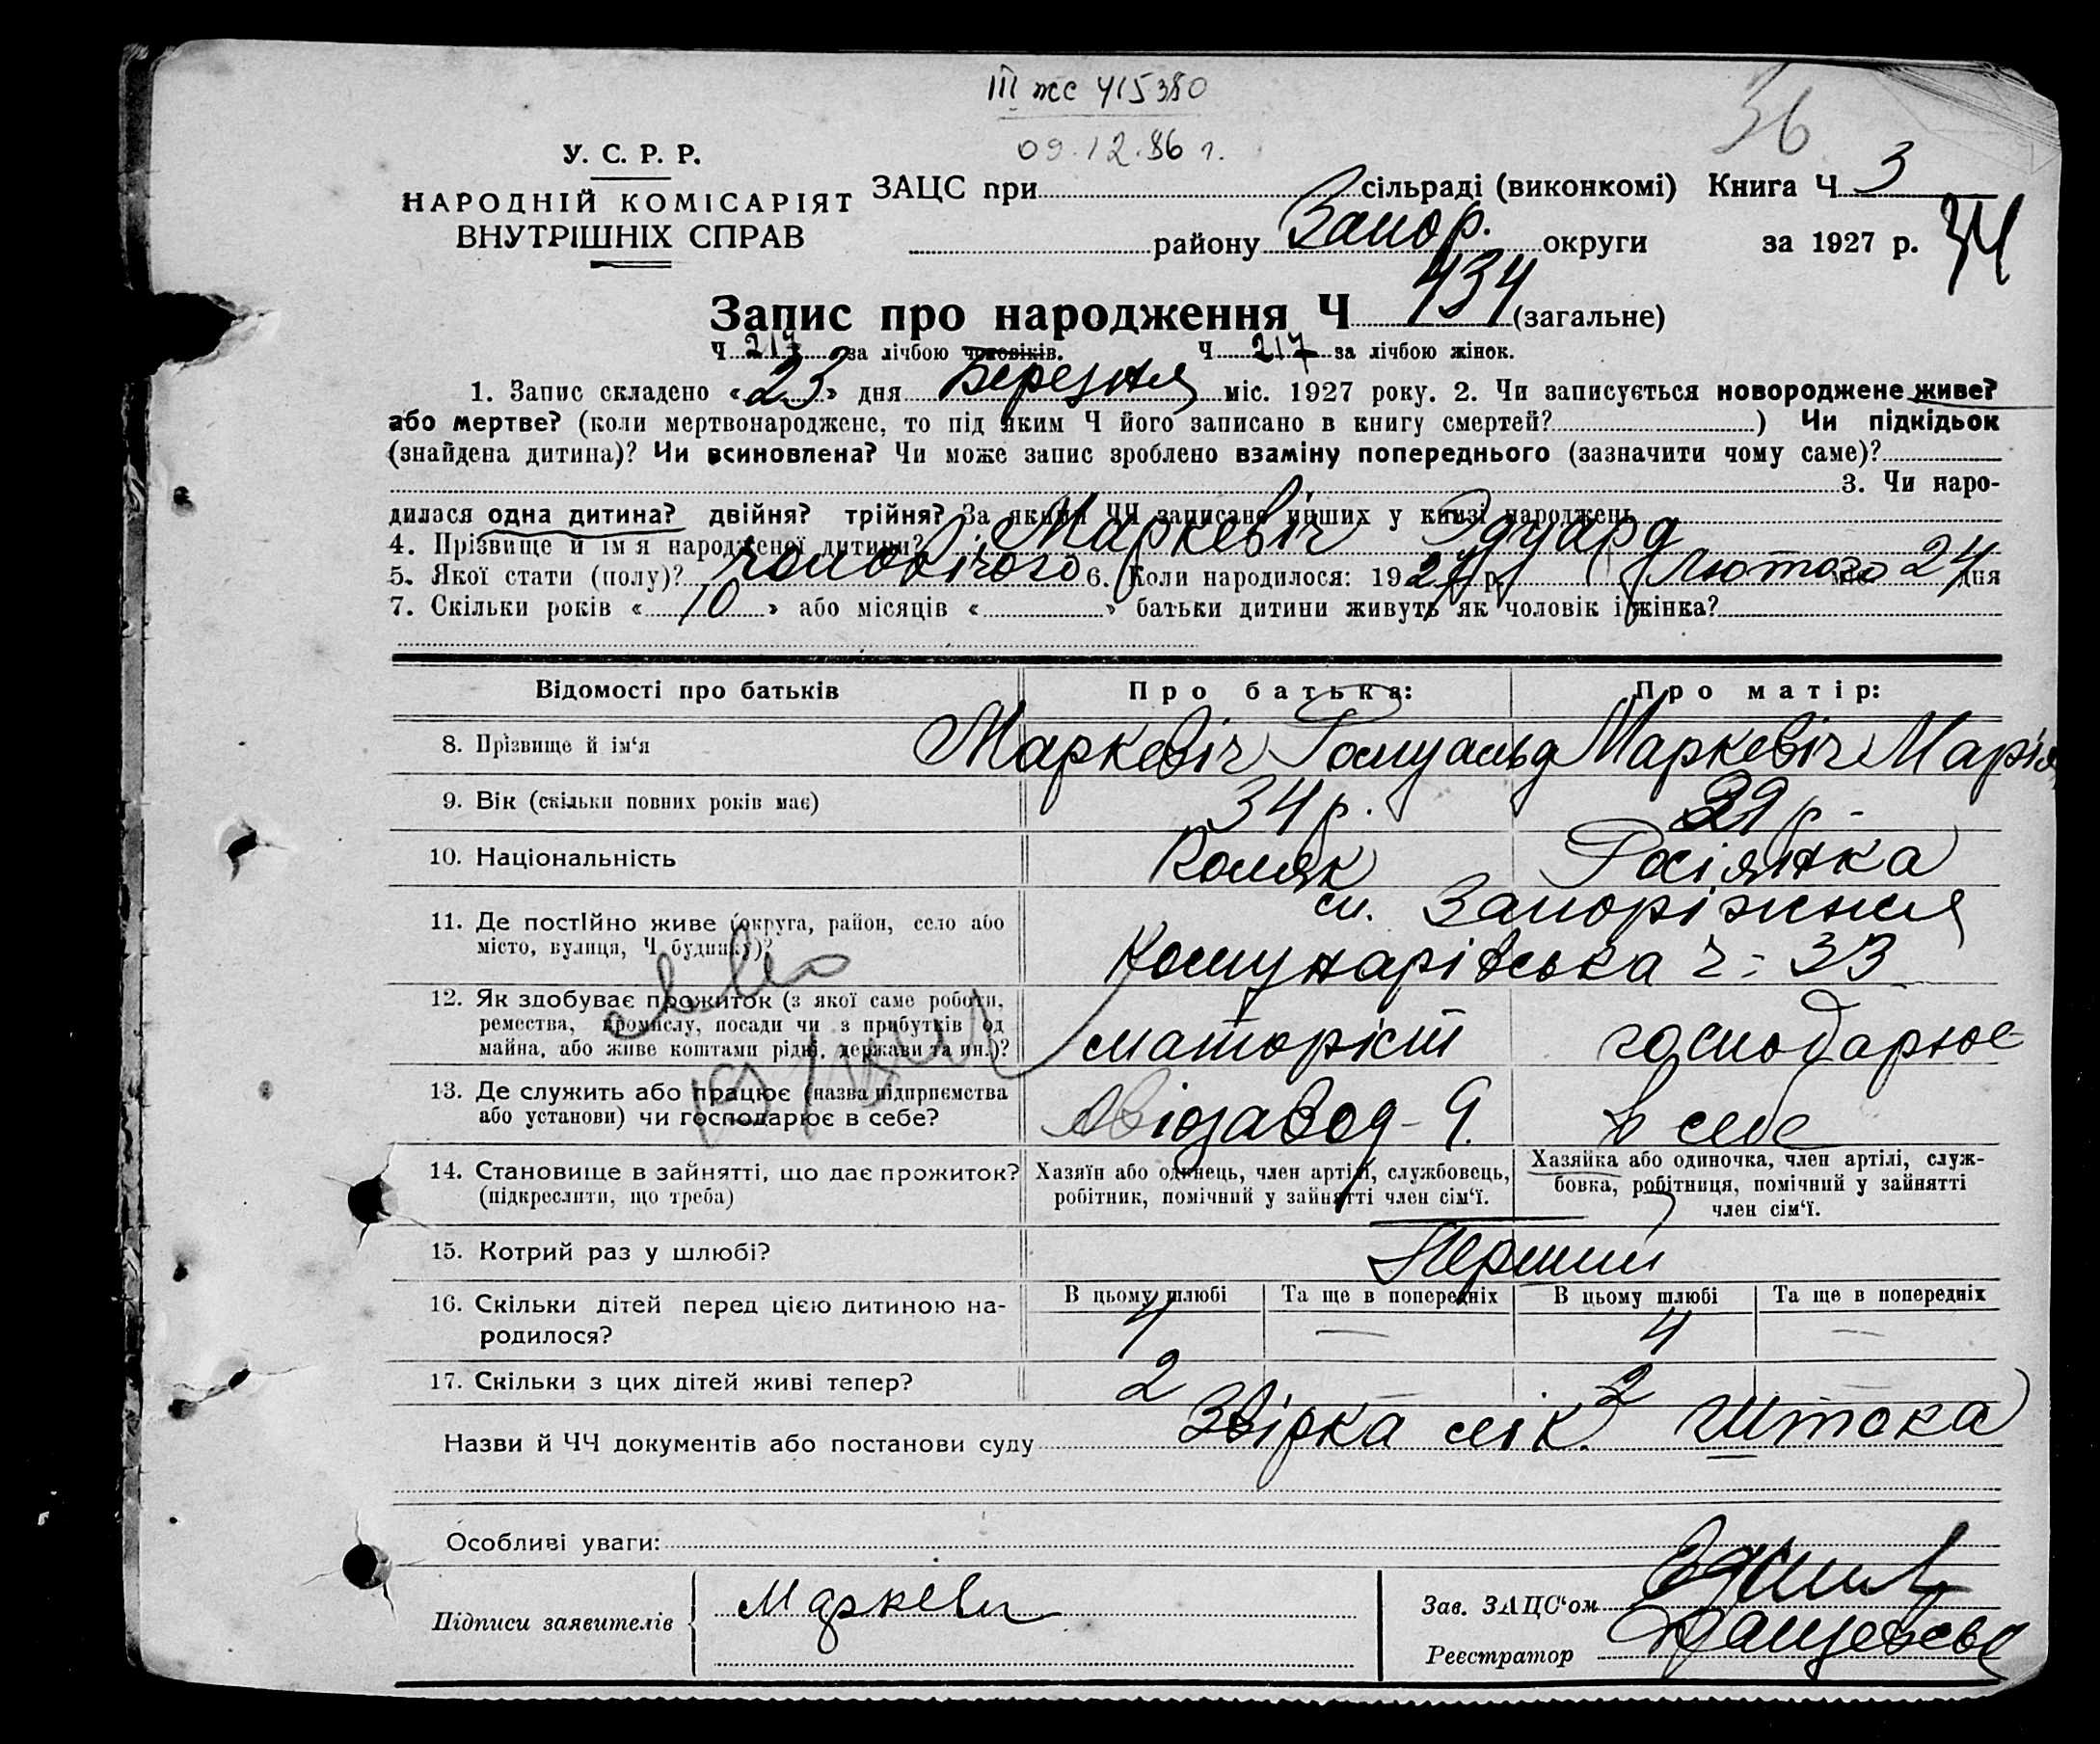 III жс 415380
09.12.86 г.
36
У. С. Р. Р.
НАРОДНІЙ КОМІСАРІЯТ
ВНУТРІШНІХ СПРАВ
ЗАЦС при сільраді (виконкомі) Книга Ч 3
району Запор. округи за 1927 р. 34
Запис про народження Ч 434 (загальне)
Ч 217 за лічбою чоловіків. Ч 217 за лічбою жінок.
1. Запис складено «23» дня Березня міс. 1927 року. 2. Чи записується новороджене живе?
або мертве? (коли мертвонароджене, то під яким Ч його записано в книгу смертей? ) Чи підкідьок
(знайдена дитина)? Чи всиновлена? Чи може запис зроблено взаміну попереднього (зазначити чому саме)?
3. Чи наро-
дилася одна дитина? двійня? трійня? За якими ЧЧ записано инших у книзі народжень
4. Прізвище й ім'я народженої дитини? Маркевіч Едуард
5. Якої стати (полу)? чоловічого 6. Коли народилося: 1927 р. Лютого міс 24 дня
7. Скільки років « 10 » або місяців « » батьки дитини живуть як чоловік і жінка?
Відомості про батьків Про батька: Про матір:
8. Прізвище й ім'я Маркевіч Ромуальд Маркевіч Марія
9. Вік (скільки повних років має) 34 р. 29 р.
10. Національність Поляк Росіянка
11. Де постійно живе (округа, район, село або
місто, вулиця, Ч будинку)?
м. Запоріжжя
Комунарівська ч. 33
12. Як здобуває прожиток (з якої саме роботи,
ремества, промислу, посади чи з прибутків од
майна, або живе коштами рідні, держави та ин.)?
моторіст господарює
13. Де служить або працює (назва підприємства
або установи) чи господарює в себе?
Авіозавод-9. в себе
14. Становище в зайнятті, що дає прожиток?
(підкреслити, що треба)
Хазяїн або одинець, член артілі, службовець,
робітник, помічний у зайнятті член сім'ї.
Хазяйка або одиночка, член артілі, служ-
бовка, робітниця, помічний у зайнятті
член сім'ї.
15. Котрий раз у шлюбі? Перший
16. Скільки дітей перед цією дитиною на-
родилося?
В цьому шлюбі Та ще в попередніх В цьому шлюбі Та ще в попередніх
4 — 4 —
17. Скільки з цих дітей живі тепер? 2 — 2 —
Назви й ЧЧ документів або постанови суду Звірка лік. Штока
Особливі уваги:
Підписи заявителів Маркевич
Зав. ЗАЦС'ом
Реєстратор